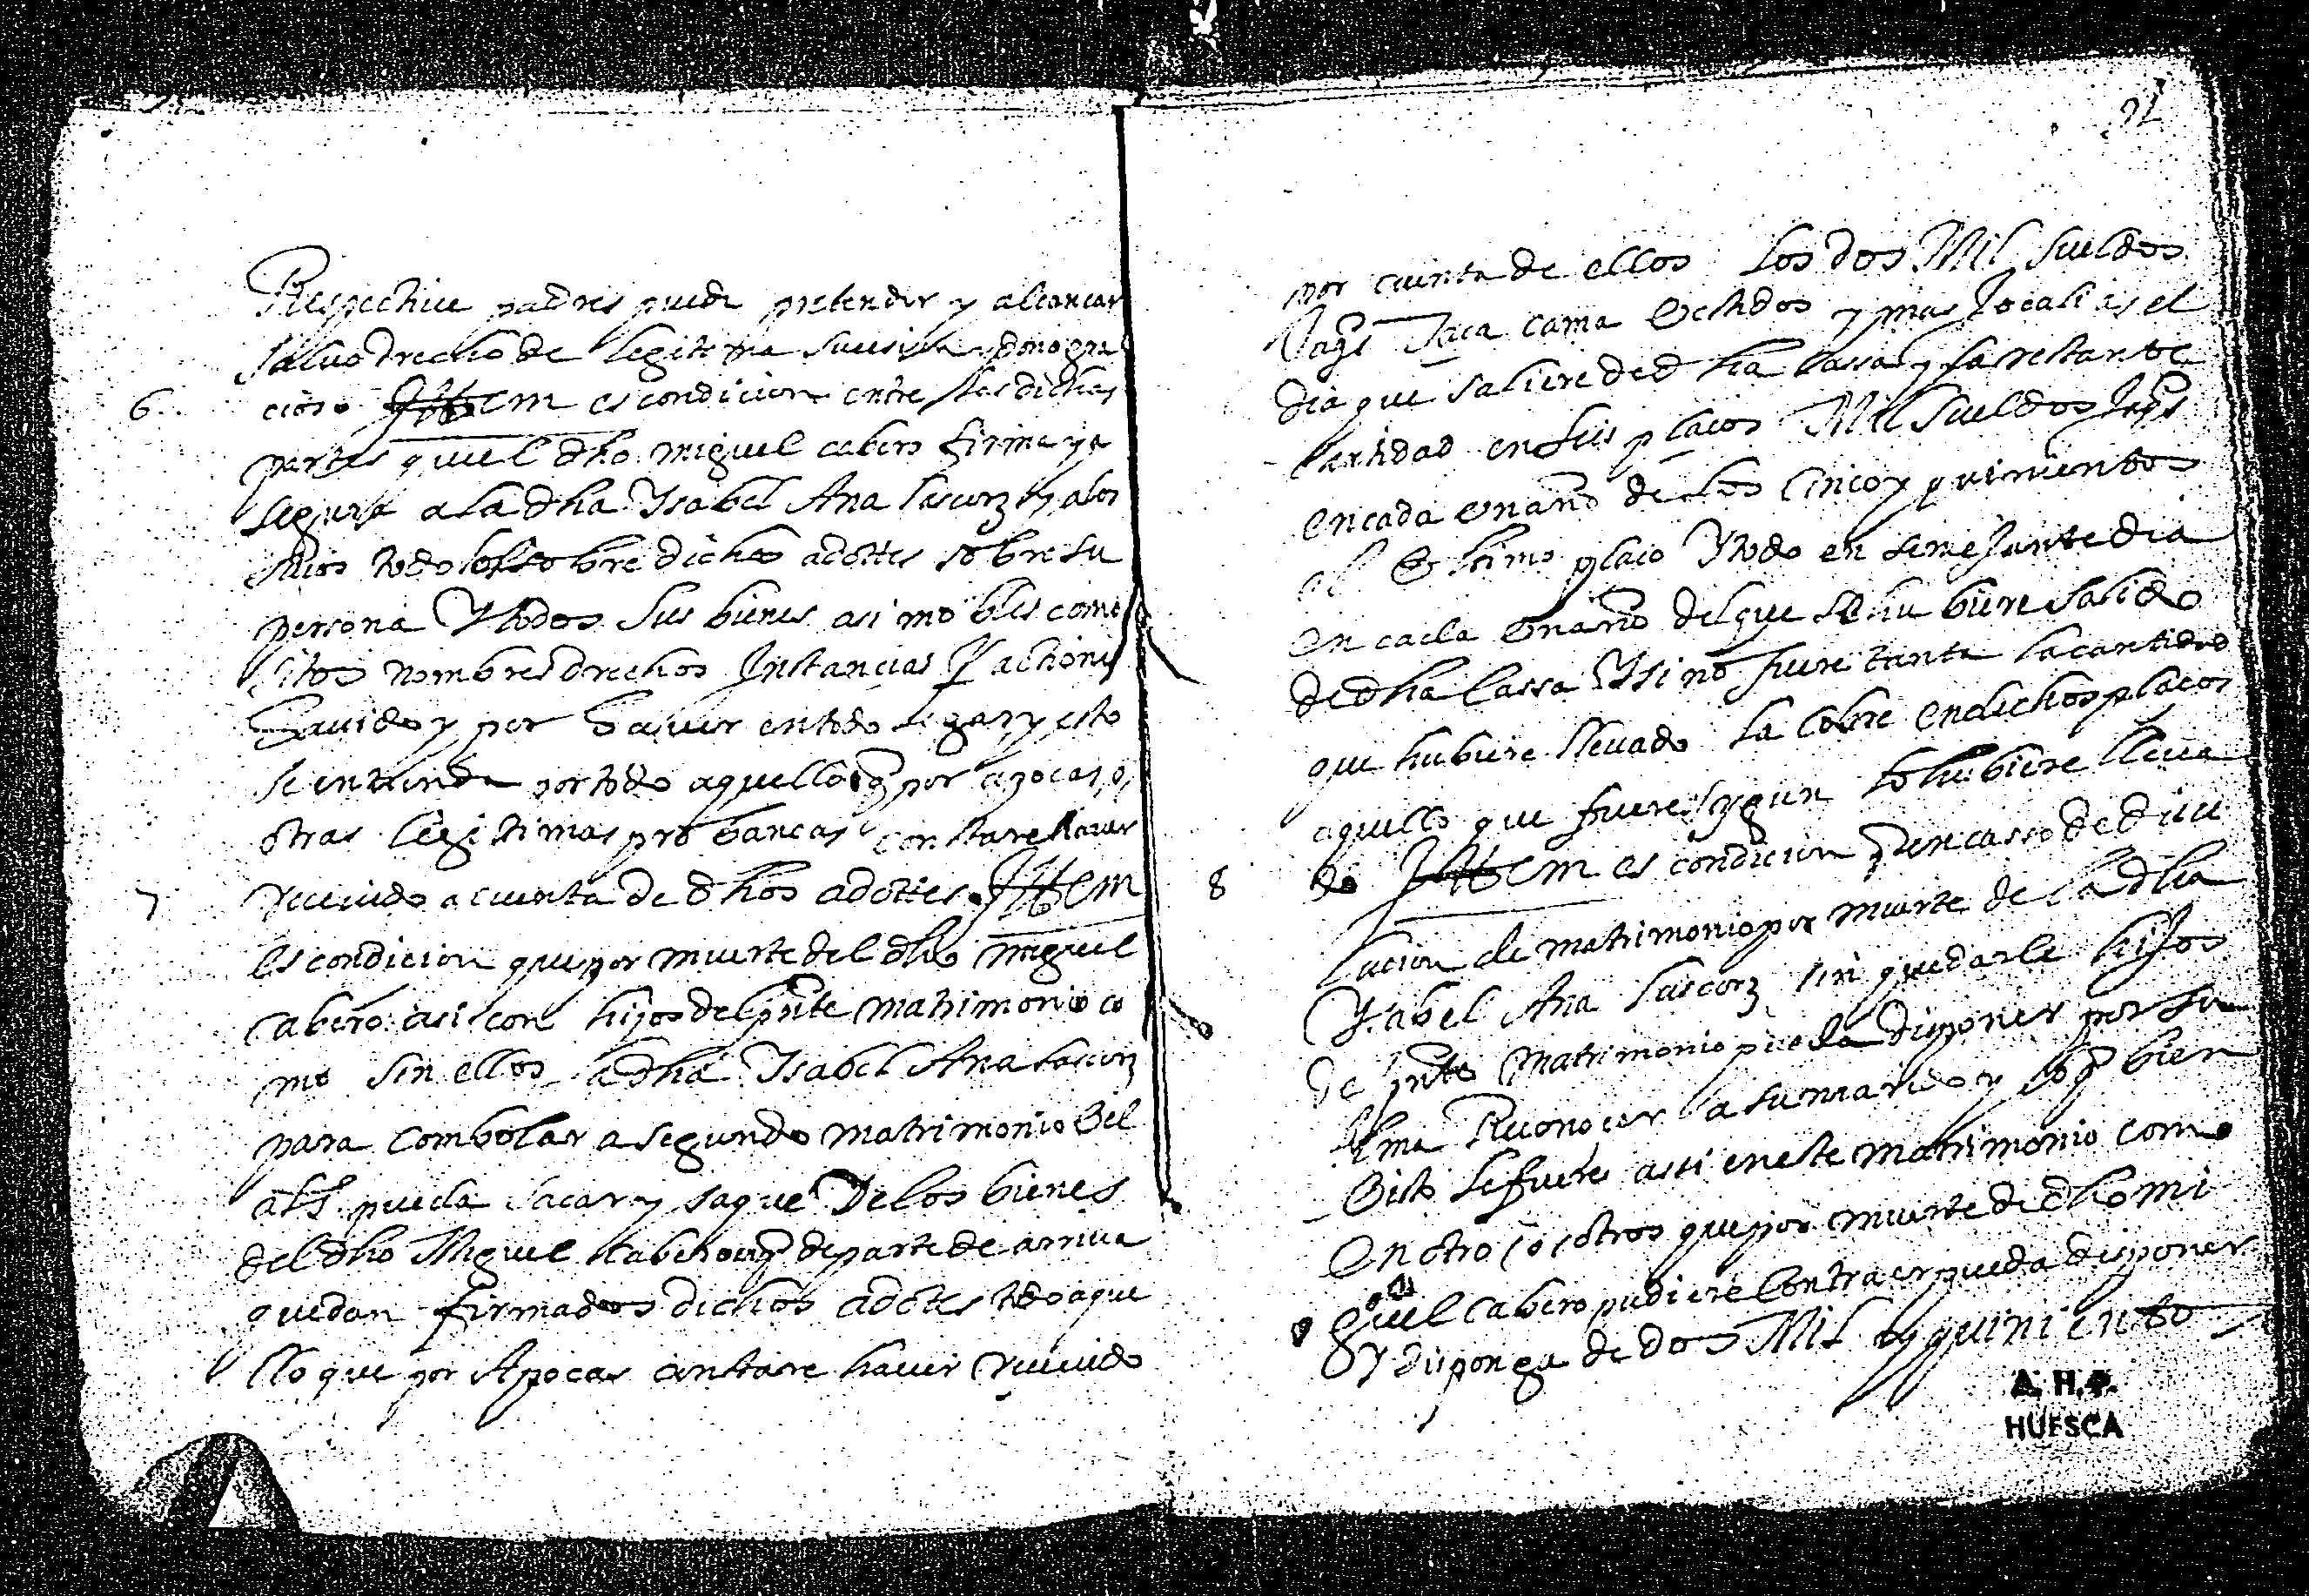 Respectiue padres puede pretender y alcançar
saluo drecho de legitima sucission y dono gra
6. cioso Ittem es condicion entre las dichas
partes que el dho miguel cabero firma y a
segura a la dha Ysabel Ana Lascorz y a los
suios todo lo sobre dicho adottes sobre su
persona Y todos sus bienes asi mobles como
sitos nombres drechos Instancias Y actiones
hauidos y por hauer en todo lugar y esto
se entienda por todo aquello q por apocas o
otras legitimas probancas constare hauer
7 reciuido a cuenta de dhos adottes. Ittem
es condicion que por muerte del dho miguel
cabero asi con hijos del pnte matrimonio co
mo sin ellos la dha Ysabel Ana lascorz
para combolar a segundo matrimonio Vel
als pueda sacar y saque De los bienes
del dho Miguel Cabero en q de parte de arriua
quedan firmados dichos adottes todo aque
llo que por Apocas constare hauer reciuido
92
por cuenta de ellos Los dos Mil sueldos
Jaqs Jaca cama Vestidos y mas Jocalias el
dia que saliere de dha cassa y la restante
cantidad en sus placos Mil sueldos Jaqs
en cada Vn año de los cinco y quinientos
el Vltimo placio Y todo en semejante dia
en cada Vn año del que se hubiere salido
de dha cassa Y si no fuere tanta la cantidad
que hubiere lleuado la cobre en dichos placos
aquello que fuere segun lo hubiere lleua
8 do Ittem es condicion q en casso de disu
lucion de matrimonio por muerte de la dha
Ysabel Ana Lascorz sin quedarle hijos
de pnte Matrimonio pueda disponer por su
Alma Reconocer a su marido y lo q bien
Visto le fuere assi en este matrimonio como
en otro o otros que por muerte de dho mi
guel cabero pudiere contraer pueda disponer
y disponga de dos Mil y quiniento
A. H. P.
HUESCA